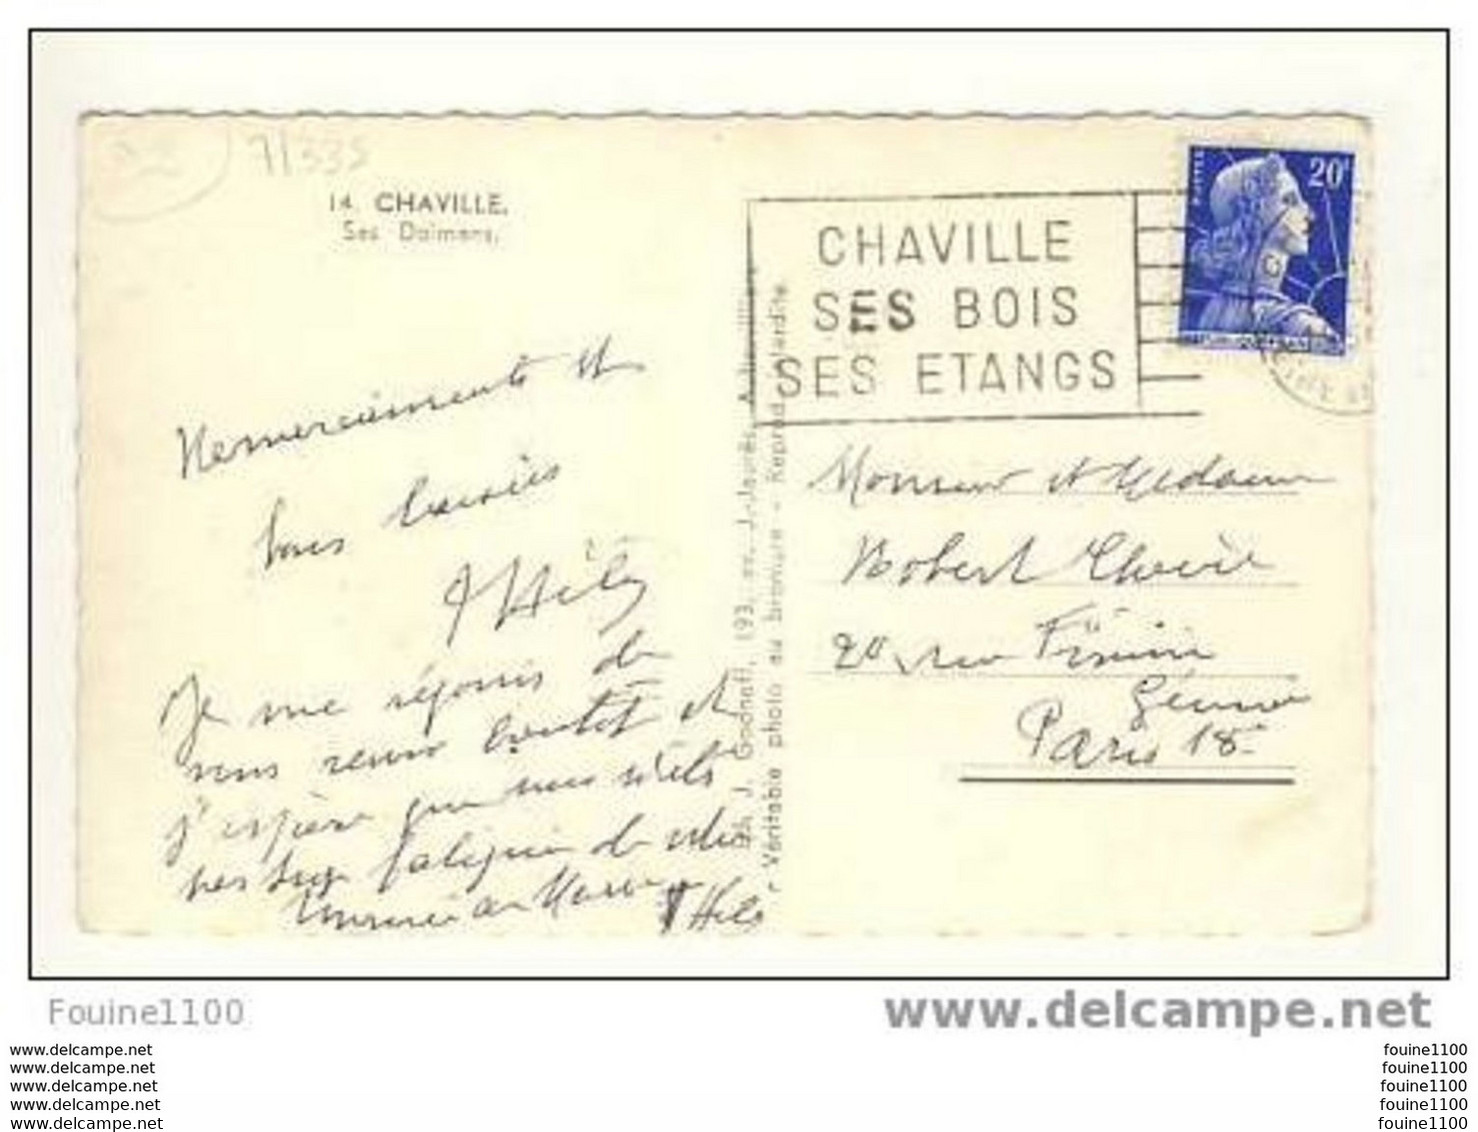 7/335
14. CHAVILLE.
Ses Dolmens.
CHAVILLE
SES BOIS
SES ETANGS
POSTES
20F
Remerciements et
bons baisers
Je me réjouis de
vous revoir bientôt et
j'espère que vous n'êtes
pas trop fatigués de votre
Edit. J. Godneff, 193, av. J.-Jaurès, Aubervilliers
Véritable photo au bromure - Reprod. interdite
Monsieur et Madame
Robert
20 rue
Paris 18e
Fouine1100
www.delcampe.net
www.delcampe.net
www.delcampe.net
www.delcampe.net
www.delcampe.net
www.delcampe.net
fouine1100
fouine1100
fouine1100
fouine1100
fouine1100